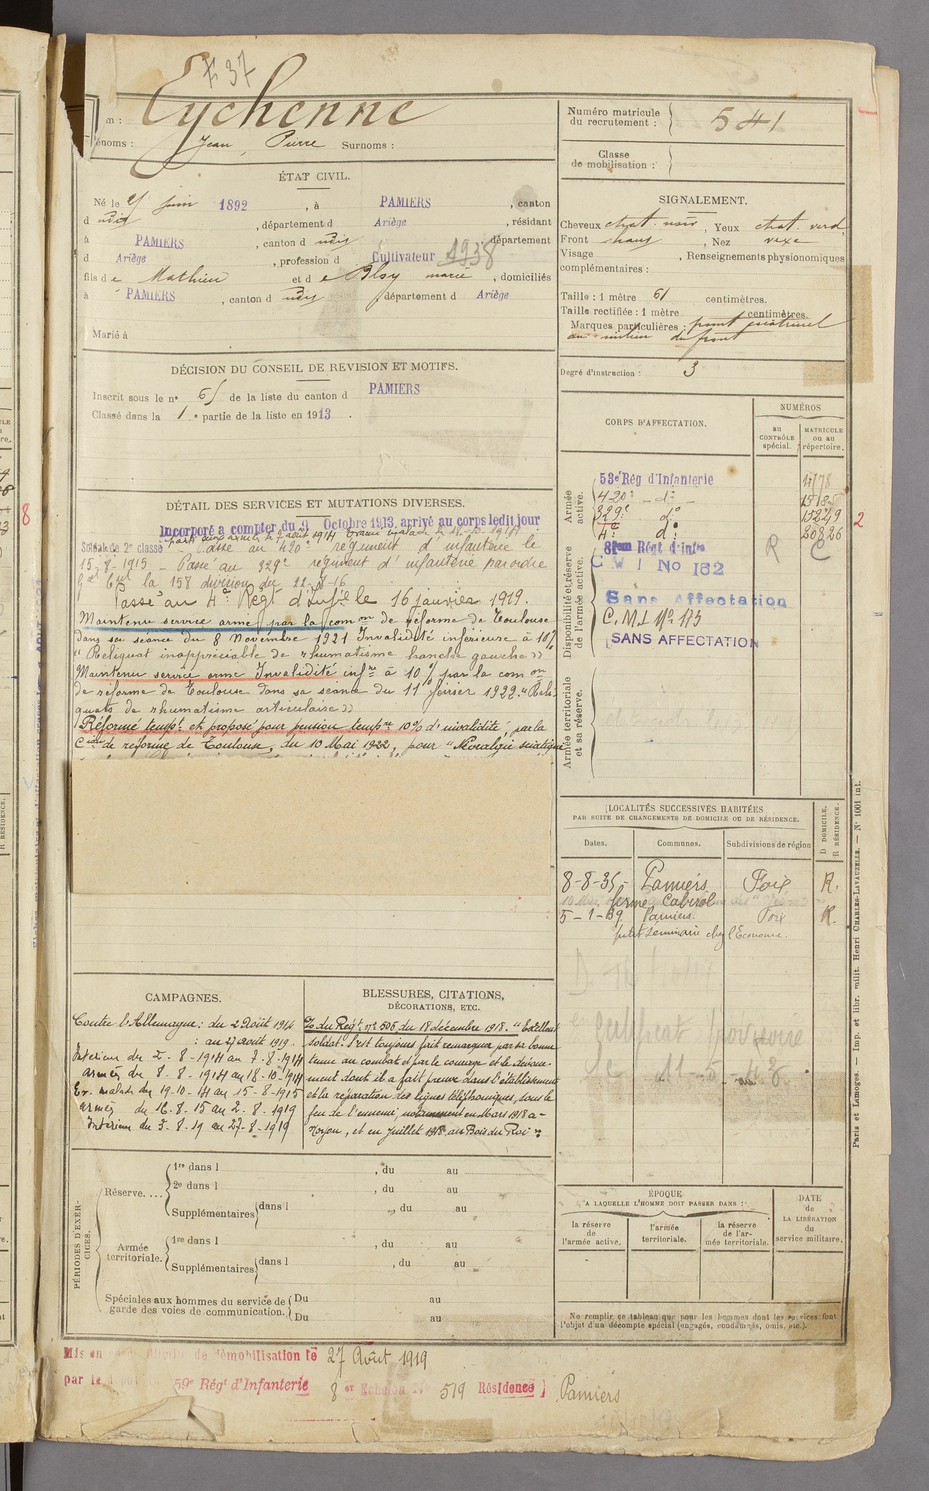 F 37
Eychenne
Nom :
Prénoms : Jean, Pierre Surnoms :
Numéro matricule du recrutement : 541
Classe de mobilisation :
ÉTAT CIVIL.
Né le juin 1892, à PAMIERS, canton
d udit, département d Ariège, résidant
à PAMIERS, canton d udit, département
d Ariège, profession d Cultivateur 1938
fils de Mathieu et de Elsy marie, domiciliés
à PAMIERS, canton d udit, département d Ariège
Marié à
SIGNALEMENT.
Cheveux chat. noir, Yeux chat. verd,
Front haut, Nez vexe
Visage , Renseignements physionomiques
complémentaires :
Taille : 1 mètre 61 centimètres.
Taille rectifiée : 1 mètre centimètres.
Marques particulières : point cicatriciel
au milieu du front
Degré d'instruction : 3
DÉCISION DU CONSEIL DE REVISION ET MOTIFS.
Inscrit sous le no 65 de la liste du canton d PAMIERS
Classé dans la 1re partie de la liste en 1913.
DÉTAIL DES SERVICES ET MUTATIONS DIVERSES.
Incorporé à compter du 9 Octobre 1913, arrivé au corps ledit jour
Soldat de 2e classe
Passé au 420e régiment d'infanterie le
15-8-1915 - Passé au 329e régiment d'infanterie par ordre
Gal Ct la 158 division du 22-8-16
Passé au 4e Régt d'Infie le 16 janvier 1919.
Maintenu service armé par la comon de réforme de Toulouse
dans sa séance du 8 Novembre 1921 Invalidité inférieure à 10%
"Reliquat inappréciable de rhumatisme hanche gauche"
Maintenu service armé Invalidité infre à 10% par la comon
de réforme de Toulouse dans sa séance du 11 février 1922. "Reli-
quats de rhumatisme articulaire"
Réformé tempt et proposé pour pension tempre 10% d'invalidité, par la
Cion de réforme de Toulouse, du 10 Mai 1922, pour "Névralgie sciatique
CORPS D'AFFECTATION.
NUMÉROS
au CONTRÔLE spécial.
MATRICULE ou au répertoire.
Armée active.
53e Rég d'Infanterie
420e do 15185
329e do 15249
4e do 20826
Disponibilité et réserve de l'armée active.
Régt d'Infie R C
C M I No 182
Sans Affectation
C.M.I No 173
SANS AFFECTATION
Armée territoriale et sa réserve.
LOCALITÉS SUCCESSIVES HABITÉES
PAR SUITE DE CHANGEMENTS DE DOMICILE OU DE RÉSIDENCE.
Dates. Communes. Subdivisions de région D DOMICILE. R RÉSIDENCE.
8-8-35- Pamiers Foix R.
ferme Cabirol
5-1-39 Pamiers. Foix R.
petit séminaire chez l'Econome.
Certificat provisoire
le 11-5-48
CAMPAGNES.
Contre l'Allemagne : du 2 Août 1914
: au 27 août 1919.
Intérieur du 2-8-1914 au 7-8-1914
armées du 8-8-1914 au 18-10-1914
Ev. malade du 19-10-14 au 15-8-1915
armées du 16-8-15 au 2-8-1919
Intérieur du 3-8-19 au 27-8-1919
BLESSURES, CITATIONS,
DÉCORATIONS, ETC.
O/ du Régt no 506 du 18 décembre 1918. "Excellent
soldat. S'est toujours fait remarquer par sa bonne
tenue au combat et par le courage et le dévoue-
ment dont il a fait preuve dans l'établissement
et la réparation des lignes téléphoniques, sous le
feu de l'ennemi, notamment en Mars 1918 à
Noyon, et en Juillet 1918 au Bois du Roi"
PÉRIODES D'EXERCICES.
Réserve....
1re dans l , du au
2e dans l , du au
Supplémentaires dans l , du au
Armée territoriale.
1re dans l , du au
Supplémentaires dans l , du au
Spéciales aux hommes du service de garde des voies de communication.
Du au
Du au
ÉPOQUE
A LAQUELLE L'HOMME DOIT PASSER DANS :
la réserve de l'armée active.
l'armée territoriale.
la réserve de l'armée territoriale.
DATE de LA LIBÉRATION du service militaire.
Ne remplir ce tableau que pour les hommes dont les services font
l'objet d'un décompte spécial (engagés, condamnés, omis, etc.).
Mis en de démobilisation le 27 Août 1919
par le 59e Régt d'Infanterie 8er Echelon No 519 Résidence Pamiers
Paris et Limoges. — Imp. et libr. milit. Henri CHARLES-LAVAUZELLE. — No 1001 int.